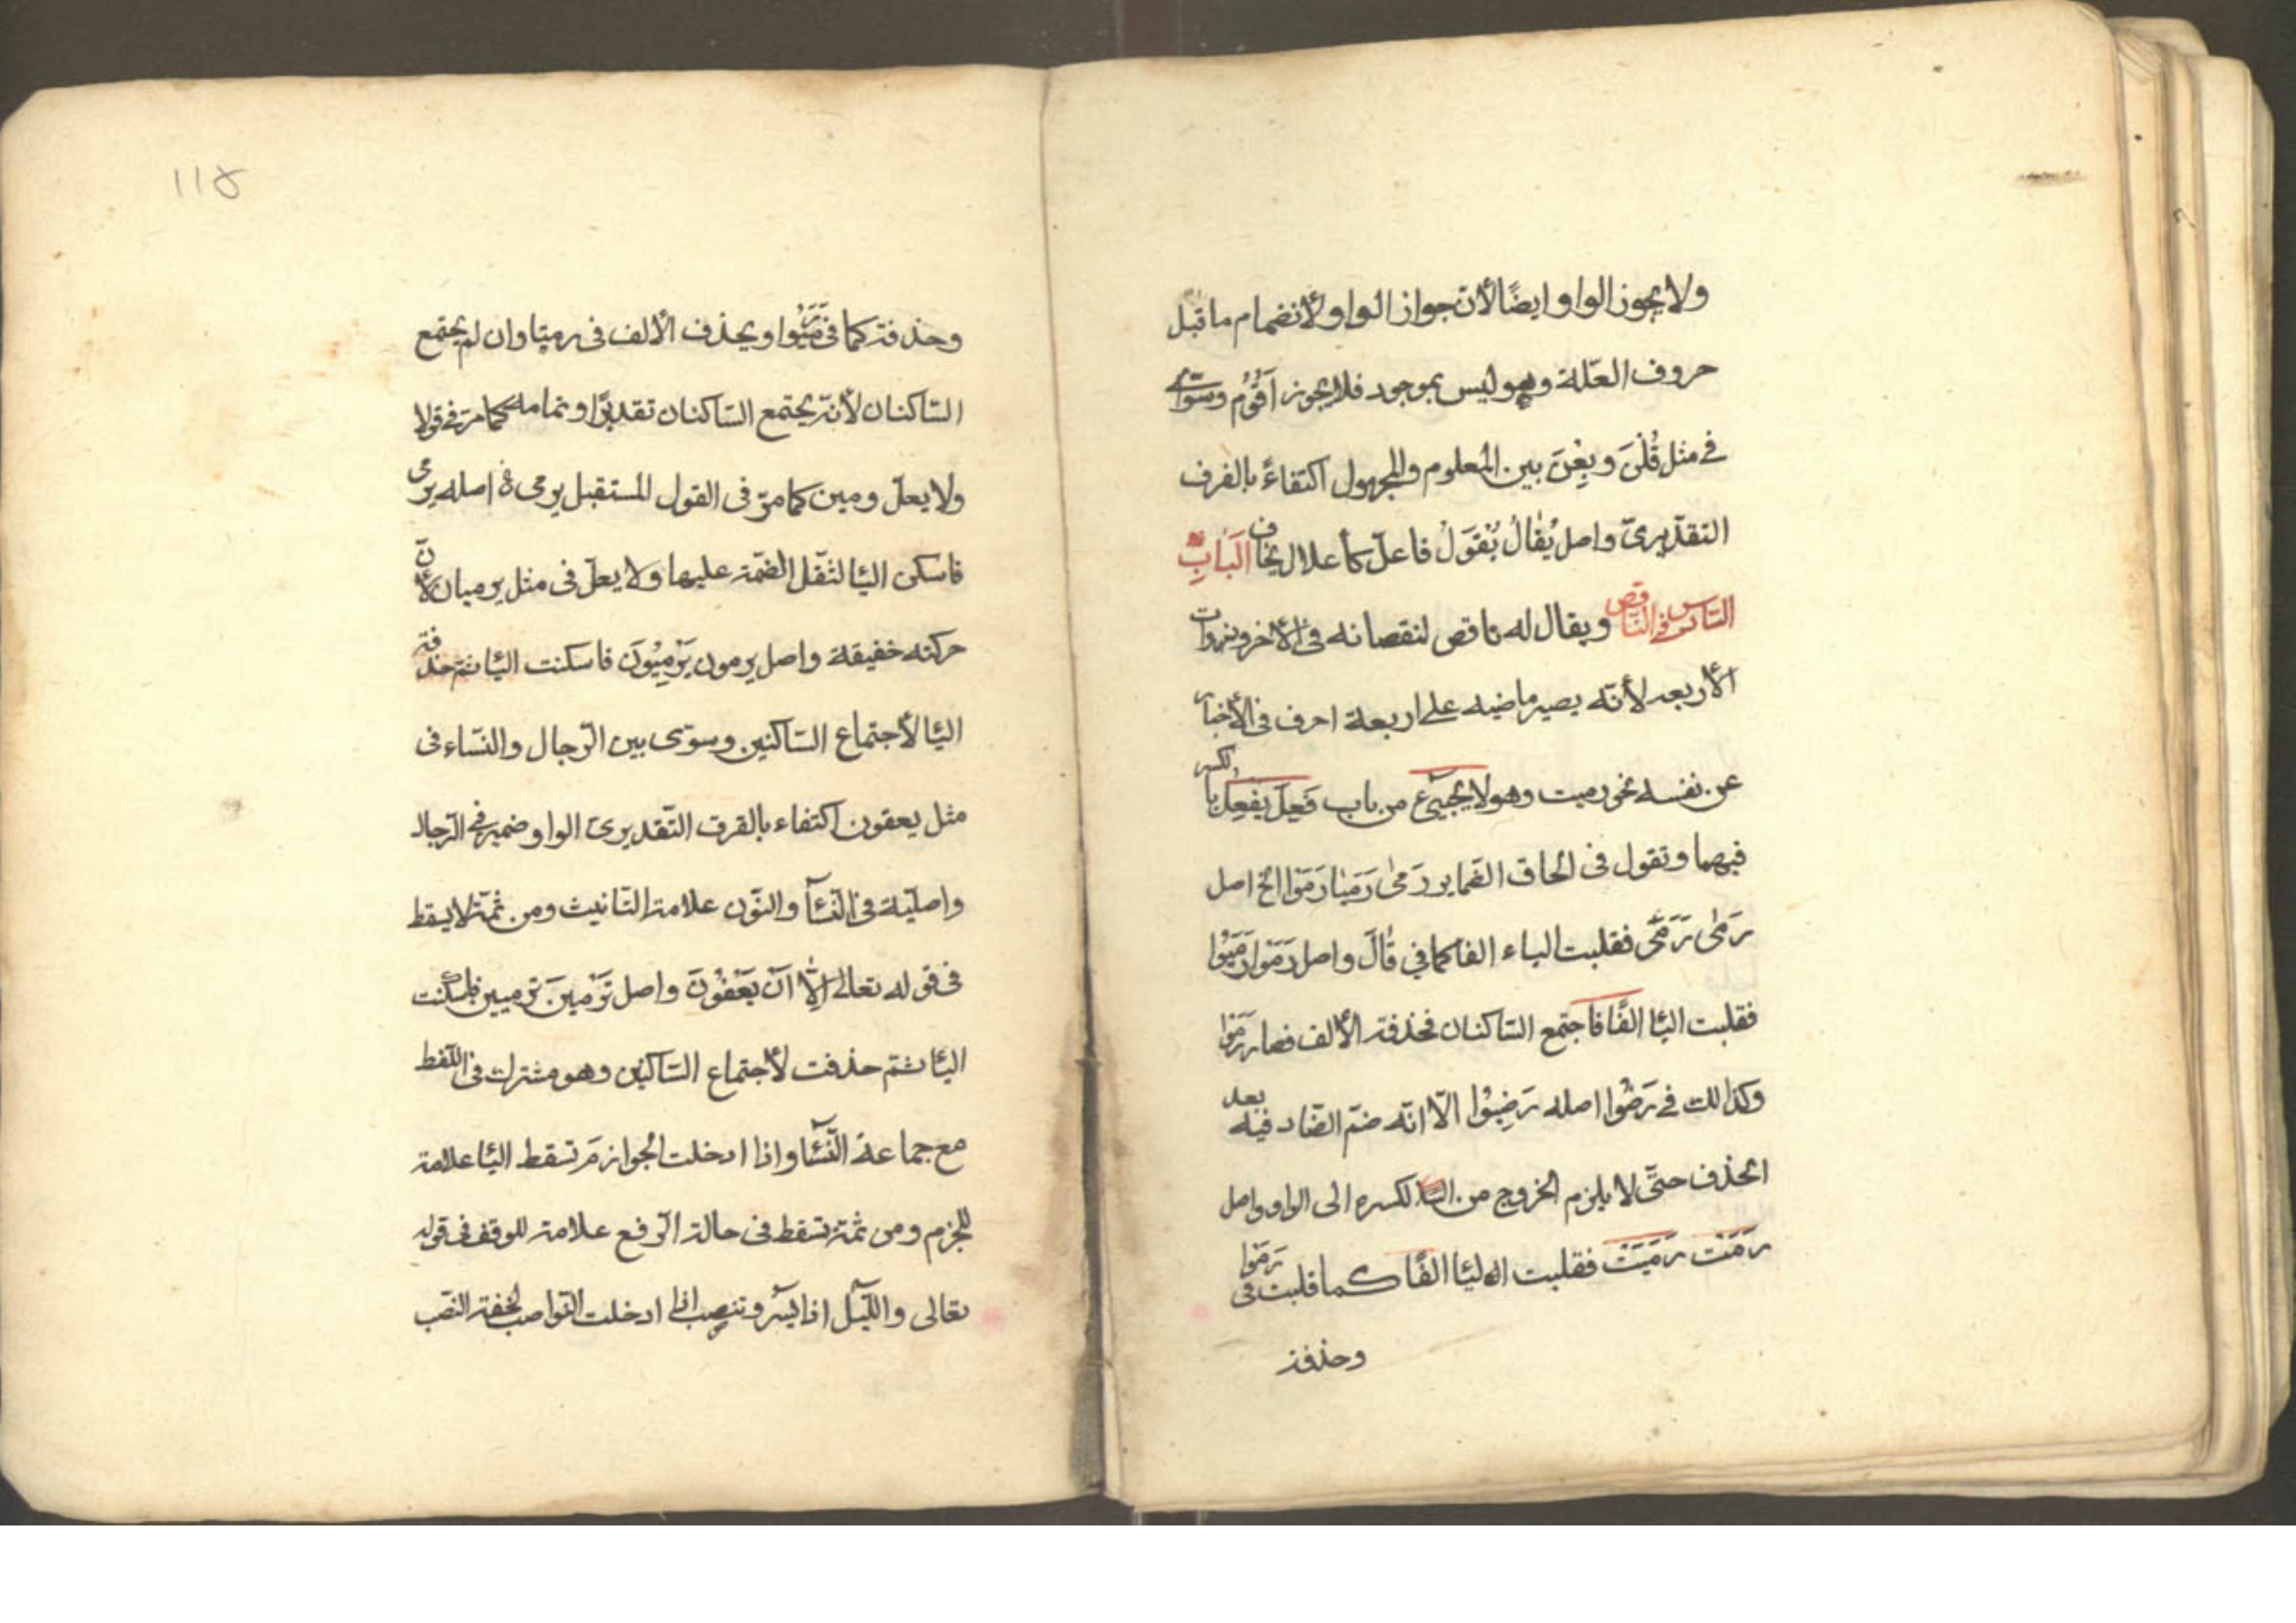 ولا يجوز الواو ايضًا لأن جواز الواو لأنضمام ما قبل
حروف العلّة وهو ليس بموجود فلا يجوز اَقُوُم وسوّى
فى مثل قُلْنَ وبِعْنَ بين المعلوم والمجهول اكتفاءً بالفرف
التقدّيرىّ واصل يُقالُ يُقْوَلُ فاعلّ كأ علال يخاف اَلبَابِ
السّادس فى النّاقص ويقال له ناقص لنقصانه فى الأخر وبذوات
الأربعه لأنّه يصير ماضيه على اربعة احرف فى الأخبار
عن نفسه نحو رميت وهو لا يجيئ من باب فَعِلَ يَفعِلُ بالكسر
فيهما وتقول فى الحاق الضماير رَمىٰ رَمَيٰا رَمَوْا الخ اصل
رَمٰى رَمَىَ فقلبت الياء الفا كما في قٰالَ واصل رَمَوْا رَمَيُوا
فقلبت الئا الفًا فاجتمع السّاكنان فحذفة الألف فصار رَمَوْا
وكذالك فى رَضُوا اصله رَضِيُوْا الّا انّه ضمّ الضّاد فيه بعد
الحذف حتَّى لا يلزم الخروج من الكسره الى الواو واصل
رَمَتْ رَمَيَتْ فقلبت الئا الفًا كما قلبت فى رَمَوْا
وحذفة
١١٥
وحذفة كما فى رَمَيُوْا ويحذف الألف فى رميتا وان لم يجتمع
السّاكنان لأنّه يجتمع السّاكنان تقديرًا وتمامه كما مرّ فى قولا
ولا يعلّ ومين كما مرّ فى القول المستقبل يرمى اصله يرمى
فاسكن الئا لثقل الضمّة عليها ولا يعلّ فى مثل يرميان لأنّ
حركته خفيفة واصل يرمون يَرْمِيُوْنَ فاسكنت الئا ثم حذفة
الئا لأجتماع السّاكنين وسوّى بين الرّجال والنسّاء فى
مثل يعفون اكتفاء بالفرق التّقديرىّ الواو ضمير فى الرّجال
واصليّة فى النسٔا والنّون علامة التانيث ومن ثمّة لا يسقط
فى قوله تعالى اِلّا اَنْ يَعْفُوْنَ واصل تَرْمينَ ترميين فاسكنت
الئا ثمّ حذفت لأجتماع السّاكنين وهو مشترك فى اللّفظ
مع جماعة النّسٔا واذا ادخلت الجوازم تسقط الئا علامة
للجزم ومن ثمّة تسقط فى حالة الرّفع علامة للوقف فى قوله
تعالى واللّيل اذا يسر وتنصب اذا ادخلت النّواصب لخفة النّصب